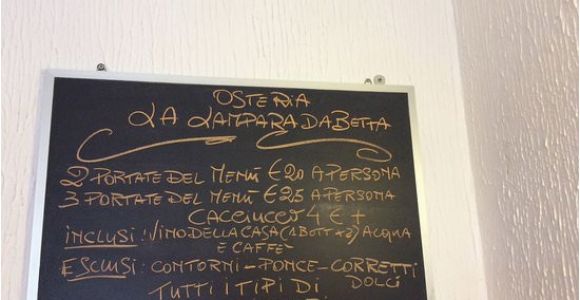 OSTERIA
LA LAMPARA DA BETTA
2 PORTATE DEL MENÚ €20 A PERSONA
3 PORTATE DEL MENÚ €25 A PERSONA
CACCIUCCO 4 € +
INCLUSI: VINO DELLA CASA (1 BOTT × 3) ACQUA
E CAFFÈ
ESCLUSI: CONTORNI - PONCE - CORRETTI
DOLCI
TUTTI I TIPI DI